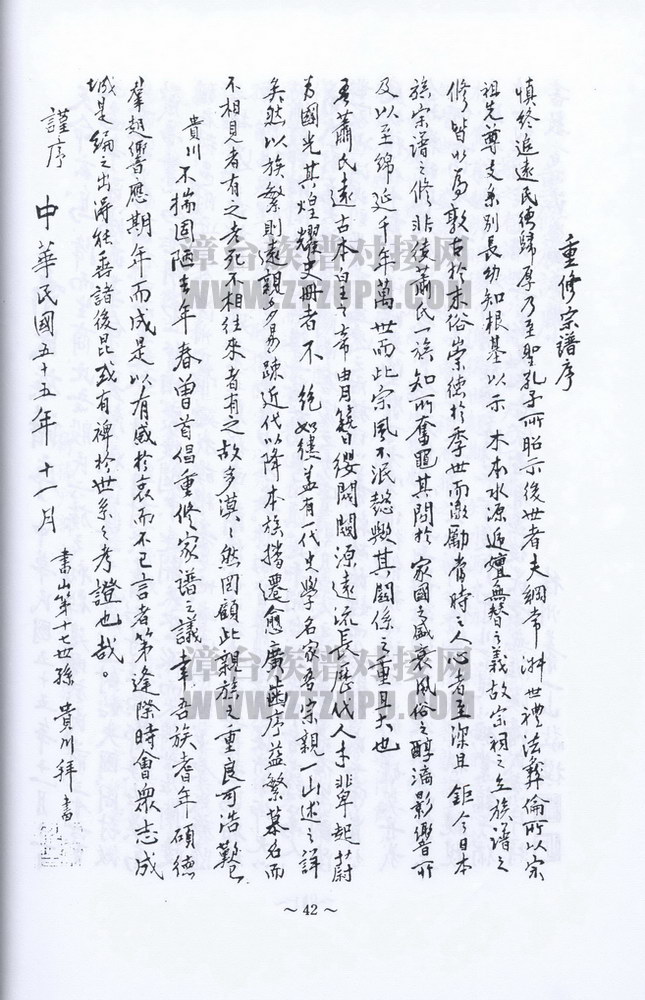 重修宗譜序
慎終追遠民德歸厚乃至聖孔子所昭示後世者夫綱常 淑世禮法彝倫所以宗
祖先尊支系別長幼知根基以示 木本水源遞嬗無替之義故宗祠之立族譜之
修 皆以為敦古於末俗崇德於季世而激勵當時之人心者至深且鉅今日本
族宗譜之修非徒蕭氏一族知所奮勵其關於 家國之盛衰風俗之醇漓影響所
及以至綿延千年萬世而此宗風不泯懿歟其關係之重且大也
吾蕭氏遠古本皇帝胄簪纓閥閱源遠流長歷代人才輩起蔚
為國光其煌耀史冊者不 絕如縷蓋有一代史學名家吾宗親一山述之詳
矣然以族繁則遠親多易疎近代以降本族播遷愈廣齒序益繁慕名而
不相見者有之老死不相往來者有之故多漠漠然罔顧此親族之重良可浩歎
貴川不揣固陋去年春曾首倡重修家譜之議幸吾族耆年碩德
羣起響應期年而成是以有感於衷而不已言者第逢際時會眾志成
城是編之出得能垂諸後昆或有裨於世系之考證也哉。
謹序 中華民國五十五年十一月 書山第十七世孫 貴川拜書
漳台族谱对接网
WWW.ZTZUPU.COM
漳台族谱对接网
WWW.ZTZUPU.COM
～42～